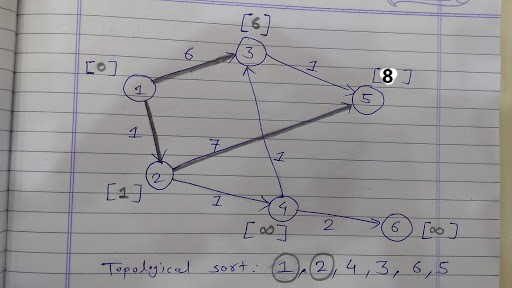 [6]
6
3
1
[0]
[8]
1
5
1
7
1
2
[1]
1
4
2
6
[∞]
[∞]
Topological sort: 1, 2, 4, 3, 6, 5